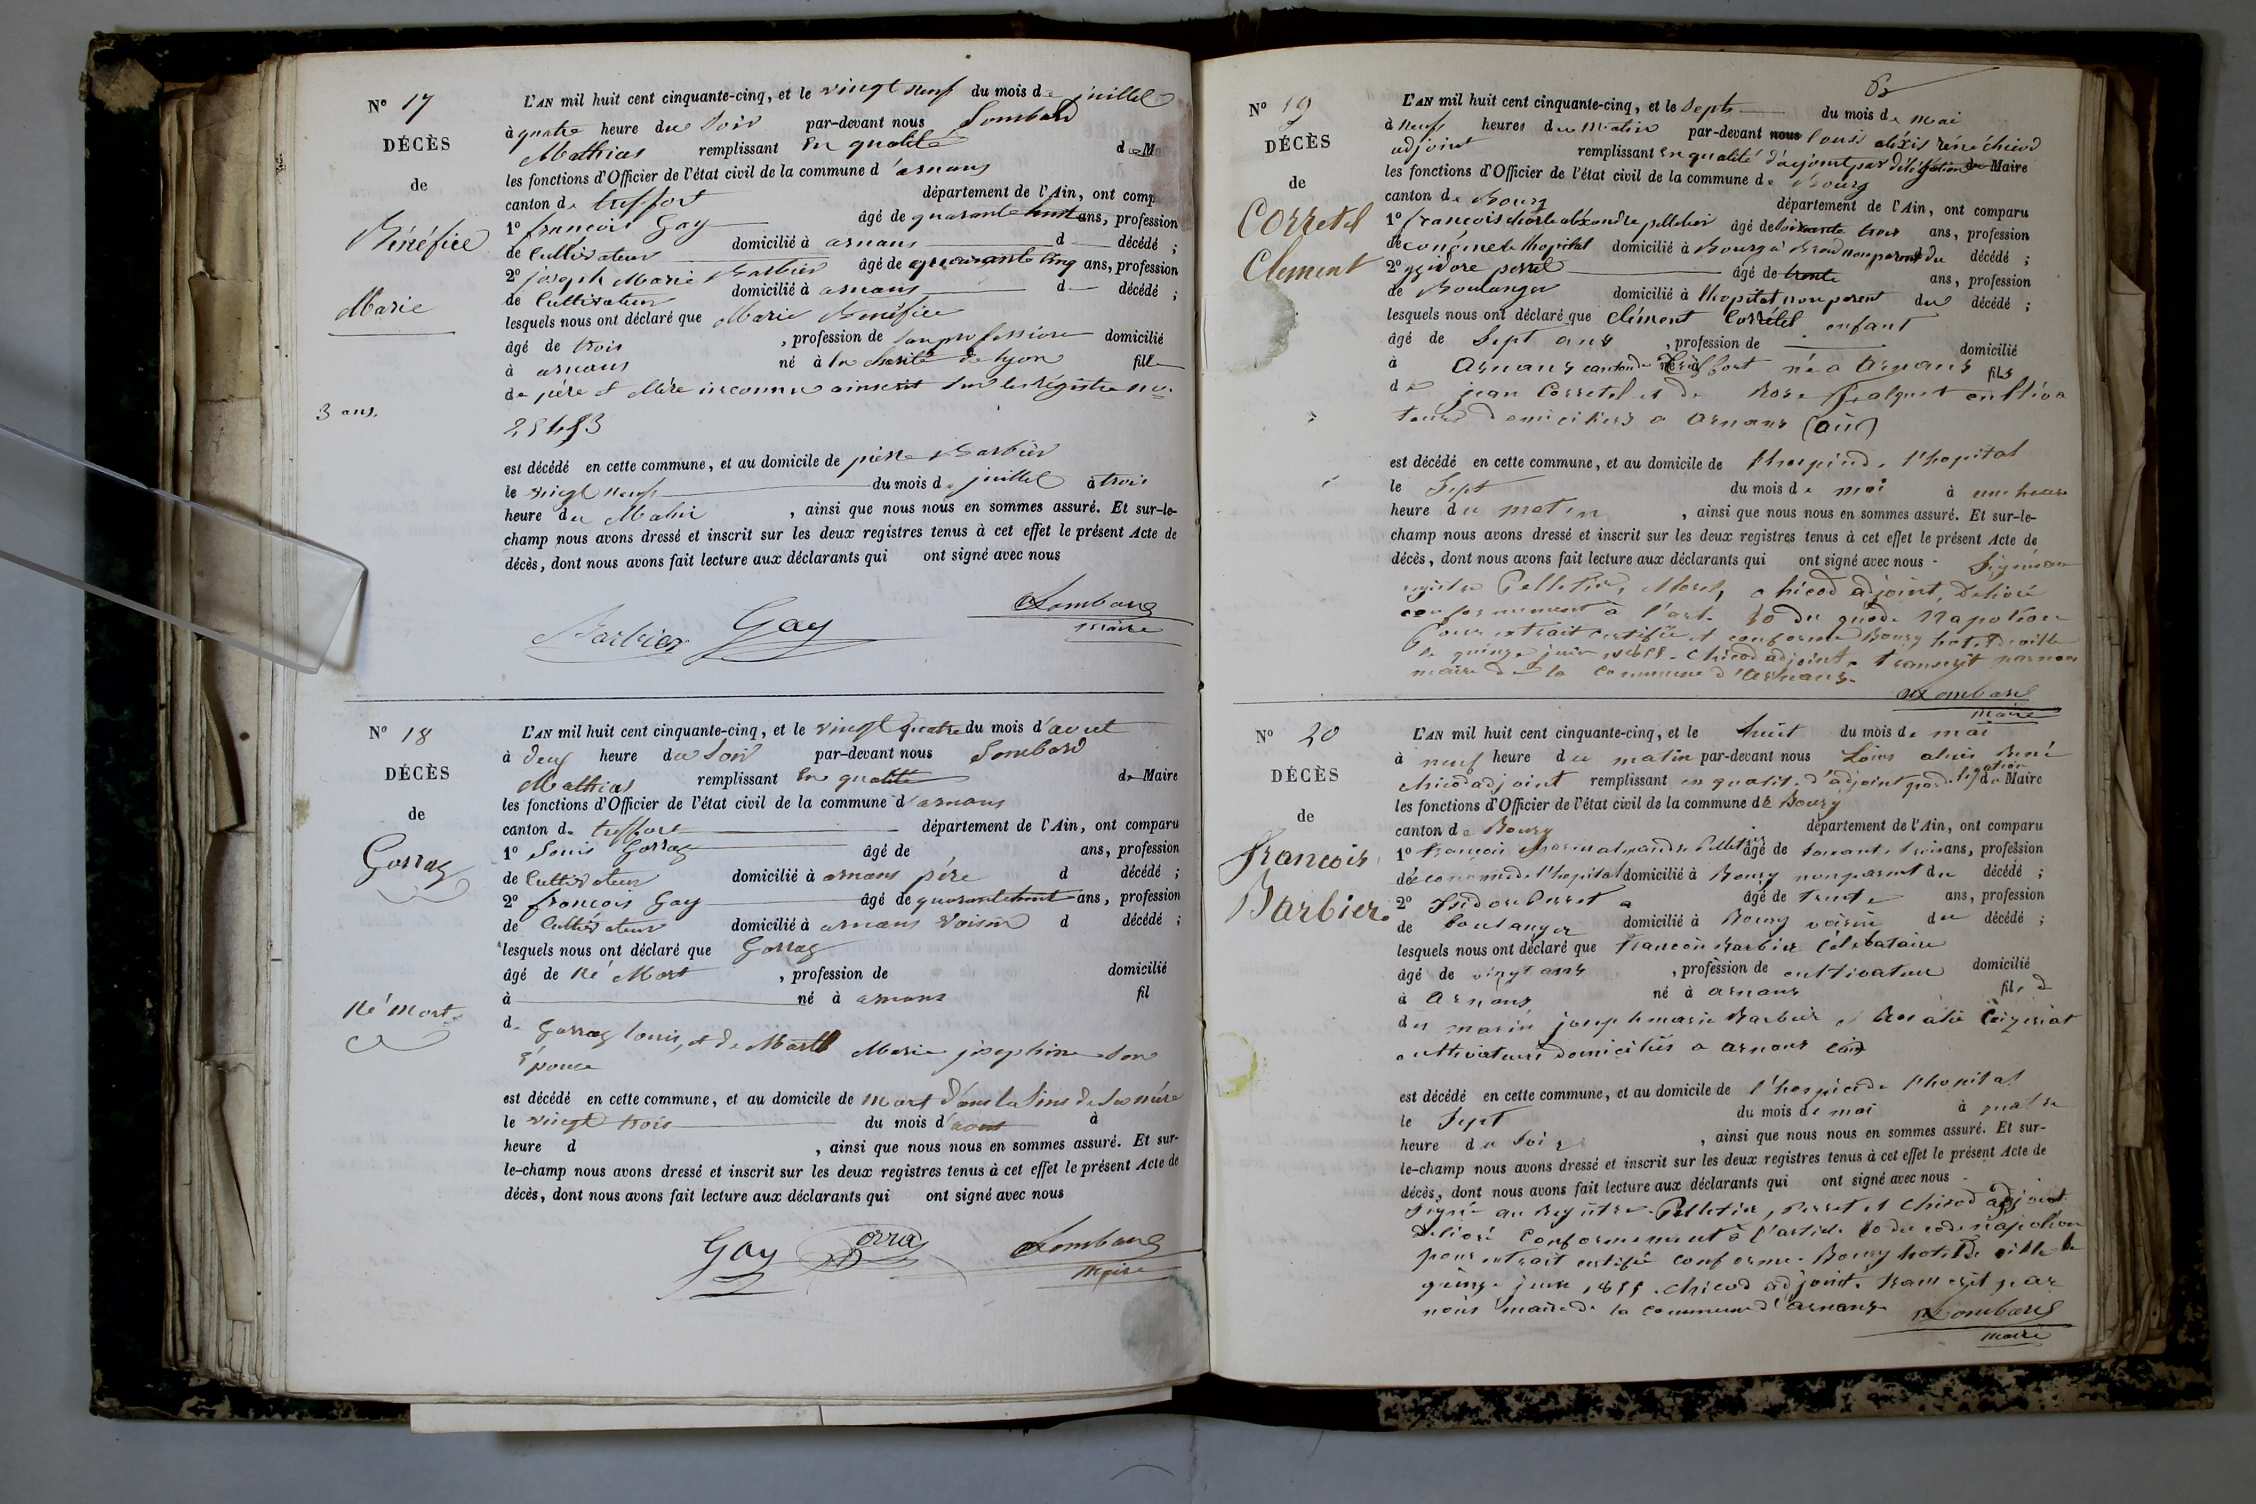 N° 17
DÉCÈS
de
Bénéfice
Marie
3 ans.
L'AN mil huit cent cinquante-cinq, et le vingt neuf du mois de juillet
à quatre heure du Soir par-devant nous Lombard
Mathias remplissant En qualité de M
les fonctions d'Officier de l'état civil de la commune d'arnans
canton de treffort département de l'Ain, ont comp
1° françois Gay âgé de quarante huit ans, profession
de Cultivateur domicilié à arnans d décédé ;
2° joseph Marie Barbier âgé de quarante cinq ans, profession
de Cultivateur domicilié à arnans d décédé ;
lesquels nous ont déclaré que Marie Bénéfice
âgé de trois , profession de sanprofession domicilié
à arnans né à la charité de lyon fille
de père et Mère inconnu ainscrit sur les régistre no.
est décédé en cette commune, et au domicile de pierre Barbier
le vingt neuf du mois de juillet à trois
heure du Matin , ainsi que nous nous en sommes assuré. Et sur-le-
champ nous avons dressé et inscrit sur les deux registres tenus à cet effet le présent Acte de
décès, dont nous avons fait lecture aux déclarants qui ont signé avec nous
Barbier Gay Lombard
maire
N° 18
DÉCÈS
de
Gorraz
Né Mort
L'AN mil huit cent cinquante-cinq, et le vingt quatre du mois d'aout
à deux heure du Soir par-devant nous Lombard
Mathias remplissant En qualité de Maire
les fonctions d'Officier de l'état civil de la commune d'arnans
canton de treffort département de l'Ain, ont comparu
1° Louis Gorraz âgé de ans, profession
de Cultivateur domicilié à arnans père d décédé ;
2° françois Gay âgé de quarante huit ans, profession
de Cultivateur domicilié à arnans Voisin d décédé ;
lesquels nous ont déclaré que Gorraz
âgé de Né Mort , profession de domicilié
à né à arnans fil
de Gorraz louis, et de Marie josephine son
épouse
est décédé en cette commune, et au domicile de Mort dans la sine de sa mére
le vingt trois du mois d'aout à
heure d , ainsi que nous nous en sommes assuré. Et sur-
le-champ nous avons dressé et inscrit sur les deux registres tenus à cet effet le présent Acte de
décès, dont nous avons fait lecture aux déclarants qui ont signé avec nous
Gay Gorraz Lombard
Maire
N° 19
DÉCÈS
de
Corretel
Clement
L'AN mil huit cent cinquante-cinq, et le Sept du mois de mai
à neuf heures du Matin par-devant nous louis aléxis réné chicod
adjoint remplissant en qualité d'adjoint par délégation de Maire
les fonctions d'Officier de l'état civil de la commune de Bourg
canton de Bourg département de l'Ain, ont comparu
1° françois aléxandre pelletier âgé de soixante trois ans, profession
de économe de lhopital domicilié à Bourg non parent du décédé ;
2° ysidore perret âgé de trente ans, profession
de Boulanger domicilié à lhopital non parent du décédé ;
lesquels nous ont déclaré que clément Corrétel enfant
âgé de Sept ans , profession de domicilié
à Arnans canton de treffort né a Arnans fils
de jean Corretel et de Rose cultiva
teurs domiciliers a Arnans (ain)
est décédé en cette commune, et au domicile de lhospice de l'hopital
le Sept du mois de mai à une heure
heure du matin , ainsi que nous nous en sommes assuré. Et sur-le-
champ nous avons dressé et inscrit sur les deux registres tenus à cet effet le présent Acte de
décès, dont nous avons fait lecture aux déclarants qui ont signé avec nous - Signé au
registre Pelletier, chicod adjoint, Delivré
conformement à l'art. 80 du code Napoléon
Pour extrait certifié et conforme Bourg hotel de ville
le quinze juin 1855. Chicod adjoint. transcrit par nous
maire de la commune d'Arnans.
Lombard
Maire
N° 20
DÉCÈS
de
Francois
Barbier.
L'AN mil huit cent cinquante-cinq, et le huit du mois de mai
à neuf heure du matin par-devant nous Louis alexis Réné
chicod adjoint remplissant en qualité d'adjoint par délégation de Maire
les fonctions d'Officier de l'état civil de la commune de Bourg
canton de Bourg département de l'Ain, ont comparu
1° François Pelletier âgé de soixante trois ans, profession
de économe de l'hopital domicilié à Bourg non parent du décédé ;
2° Isidore Perret âgé de trente ans, profession
de boulanger domicilié à Bourg voisin du décédé ;
lesquels nous ont déclaré que Francois Barbier Célibataire
âgé de vingt ans , profession de cultivateur domicilié
à Arnans né à arnans fils d
des mariés joseph marie Barbier et
cultivateurs domiciliés a arnans
est décédé en cette commune, et au domicile de l'hospice de l'hopital
le Sept du mois de mai à quatre
heure du Soir , ainsi que nous nous en sommes assuré. Et sur-
le-champ nous avons dressé et inscrit sur les deux registres tenus à cet effet le présent Acte de
décès, dont nous avons fait lecture aux déclarants qui ont signé avec nous -
Signé au Registre. Pelletier, Perret et Chicod adjoint
Delivré Conformement à l'article 80 du code napoléon
pour extrait certifié conforme. Bourg hotel de ville le
quinze juin 1855. Chicod adjoint. Transcrit par
nous maire de la commune d'Arnans
Lombard
Maire